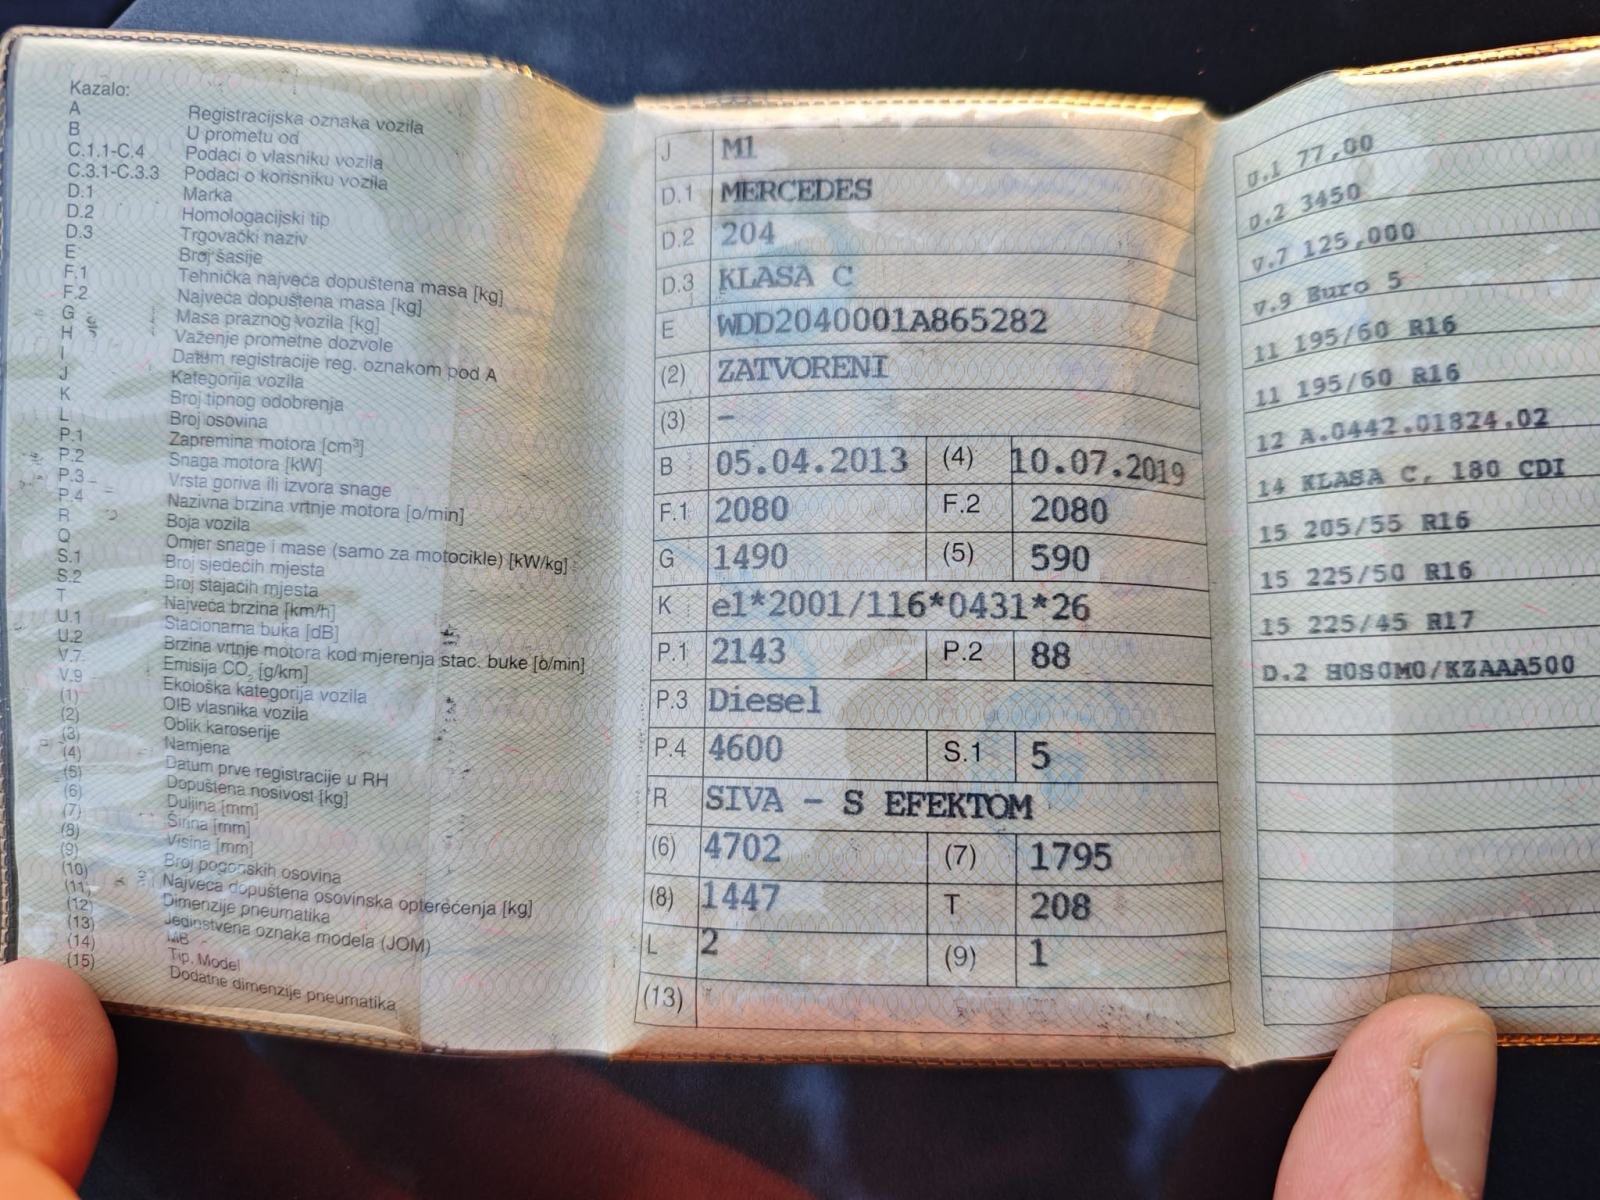 Kazalo:
A Registracijska oznaka vozila
B U prometu od
C.1.1-C.4 Podaci o vlasniku vozila
C.3.1-C.3.3 Podaci o korisniku vozila
D.1 Marka
D.2 Homologacijski tip
D.3 Trgovački naziv
E Broj šasije
F.1 Tehnička najveća dopuštena masa [kg]
F.2 Najveća dopuštena masa [kg]
G Masa praznog vozila [kg]
H Važenje prometne dozvole
I Datum registracije reg. oznakom pod A
J Kategorija vozila
K Broj tipnog odobrenja
L Broj osovina
P.1 Zapremina motora [cm³]
P.2 Snaga motora [kW]
P.3 Vrsta goriva ili izvora snage
P.4 Nazivna brzina vrtnje motora [o/min]
R Boja vozila
Q Omjer snage i mase (samo za motocikle) [kW/kg]
S.1 Broj sjedećih mjesta
S.2 Broj stajaćih mjesta
T Najveća brzina [km/h]
U.1 Stacionarna buka [dB]
U.2 Brzina vrtnje motora kod mjerenja stac. buke [o/min]
V.7 Emisija CO₂ [g/km]
V.9 Ekološka kategorija vozila
(1) OIB vlasnika vozila
(2) Oblik karoserije
(3) Namjena
(4) Datum prve registracije u RH
(5) Dopuštena nosivost [kg]
(6) Duljina [mm]
(7) Širina [mm]
(8) Visina [mm]
(9) Broj pogonskih osovina
(10) Najveća dopuštena osovinska opterećenja [kg]
(11) Dimenzije pneumatika
(12) Jedinstvena oznaka modela (JOM)
(13) MB
(14) Tip, Model
(15) Dodatne dimenzije pneumatika
J M1
D.1 MERCEDES
D.2 204
D.3 KLASA C
E WDD2040001A865282
(2) ZATVORENI
(3) –
B 05.04.2013 (4) 10.07.2019
F.1 2080 F.2 2080
G 1490 (5) 590
K e1*2001/116*0431*26
P.1 2143 P.2 88
P.3 Diesel
P.4 4600 S.1 5
R SIVA – S EFEKTOM
(6) 4702 (7) 1795
(8) 1447 T 208
L 2 (9) 1
(13)
U.1 77,00
U.2 3450
V.7 125,000
V.9 Euro 5
11 195/60 R16
11 195/60 R16
12 A.0442.01824.02
14 KLASA C, 180 CDI
15 205/55 R16
15 225/50 R16
15 225/45 R17
D.2 H0S0M0/KZAAA500